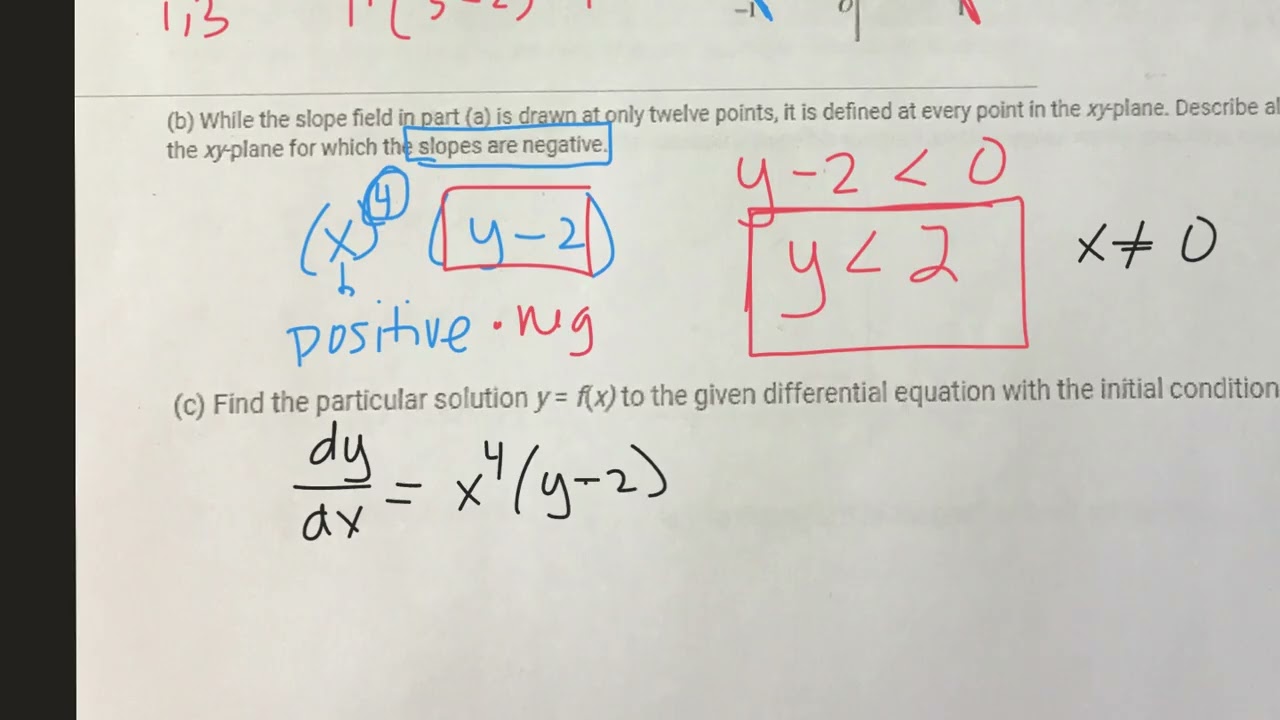 1,3
-1 0 1
(b) While the slope field in part (a) is drawn at only twelve points, it is defined at every point in the xy-plane. Describe
the xy-plane for which the slopes are negative.
(x)^4 (y-2)
positive · neg
y-2 < 0
y < 2
x ≠ 0
(c) Find the particular solution y = f(x) to the given differential equation with the initial condition
dy/dx = x^4(y-2)